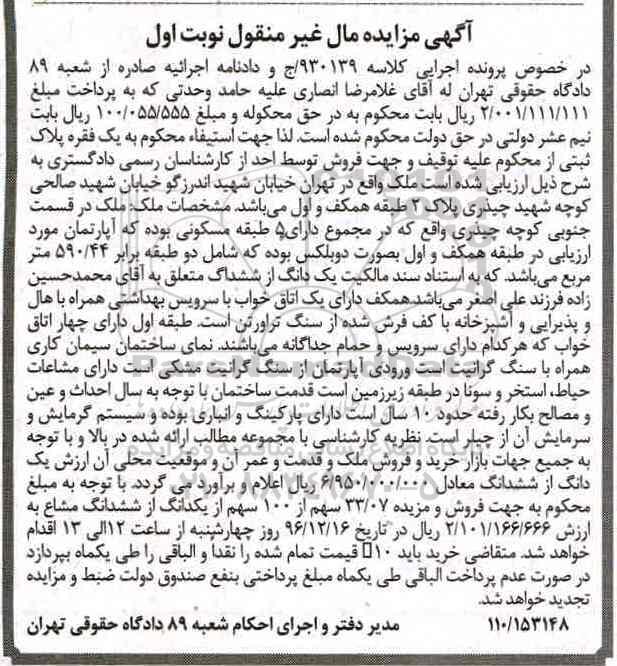 آگهی مزایده مال غیر منقول نوبت اول
در خصوص پرونده اجرایی کلاسه ۹۳۰۱۳۹/ج و دادنامه اجرائیه صادره از شعبه ۸۹
دادگاه حقوقی تهران له آقای غلامرضا انصاری علیه حامد وحدتی که به پرداخت مبلغ
۲/۰۰۱/۱۱۱/۱۱۱ ریال بابت محکوم به در حق محکوله و مبلغ ۱۰۰/۰۵۵/۵۵۵ ریال بابت
نیم عشر دولتی در حق دولت محکوم شده است. لذا جهت استیفاء محکوم به یک فقره پلاک
ثبتی از محکوم علیه توقیف و جهت فروش توسط احد از کارشناسان رسمی دادگستری به
شرح ذیل ارزیابی شده است ملک واقع در تهران خیابان شهید اندرزگو خیابان شهید صالحی
کوچه شهید چیذری پلاک ۲ طبقه همکف و اول می‌باشد. مشخصات ملک: ملک در قسمت
جنوبی کوچه چیذری واقع که در مجموع دارای۵ طبقه مسکونی بوده که آپارتمان مورد
ارزیابی در طبقه همکف و اول بصورت دوبلکس بوده که شامل دو طبقه برابر ۵۹۰/۴۴ متر
مربع می‌باشد. که به استناد سند مالکیت یک دانگ از ششداگ متعلق به آقای محمدحسین
زاده فرزند علی اصغر می‌باشد.همکف دارای یک اتاق خواب با سرویس بهداشتی همراه با هال
و پذیرایی و آشپزخانه با کف فرش شده از سنگ تراورتن است. طبقه اول دارای چهار اتاق
خواب که هرکدام دارای سرویس و حمام جداگانه می‌باشند. نمای ساختمان سیمان کاری
همراه با سنگ گرانیت است ورودی آپارتمان از سنگ گرانیت مشکی است دارای مشاعات
حیاط، استخر و سونا در طبقه زیرزمین است قدمت ساختمان با توجه به سال احداث و عین
و مصالح بکار رفته حدود ۱۰ سال است دارای پارکینگ و انباری بوده و سیستم گرمایش و
سرمایش آن از چیلر است. نظریه کارشناسی با مجموعه مطالب ارائه شده در بالا و با توجه
به جمیع جهات بازار خرید و فروش ملک و قدمت و عمر آن و موقعیت محلی آن ارزش یک
دانگ از ششدانگ معادل ۶/۹۵۰/۰۰۰/۰۰۰ ریال اعلام و برآورد می گردد. با توجه به مبلغ
محکوم به جهت فروش و مزیده ۳۳/۰۷ سهم از ۱۰۰ سهم از یکدانگ از ششدانگ مشاع به
ارزش ۲/۱۰۱/۱۶۶/۶۶۶ ریال در تاریخ ۹۶/۱۲/۱۶ روز چهارشنبه از ساعت ۱۲الی ۱۳ اقدام
خواهد شد. متقاضی خرید باید ۱۰ قیمت تمام شده را نقدا و الباقی را طی یکماه بپردازد
در صورت عدم پرداخت الباقی طی یکماه مبلغ پرداختی بنفع صندوق دولت ضبط و مزایده
تجدید خواهد شد.
۱۱۰/۱۵۳۱۴۸ مدیر دفتر و اجرای احکام شعبه ۸۹ دادگاه حقوقی تهران